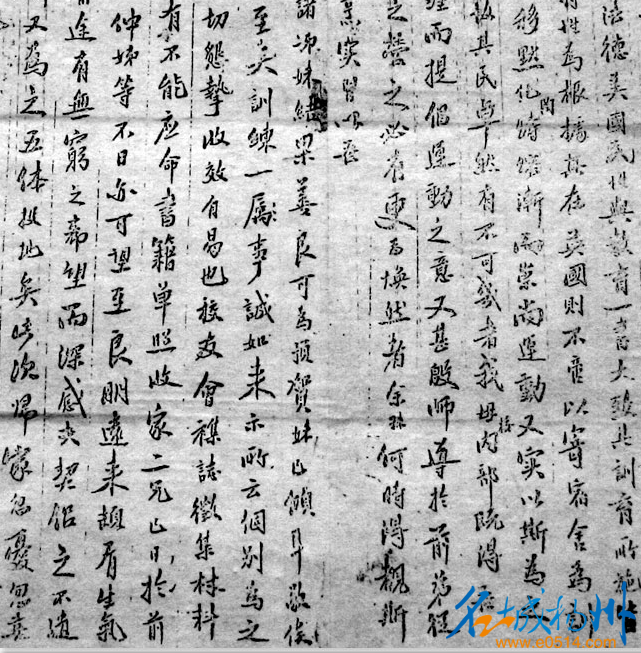 法德英國民性與教育一書大致其訓育所施
有性為根據其在英國則不啻以寄宿舍為
移默化時漸而崇尚運動又實以斯為
故其民卓然有不可幾者我母校內部既得
而提倡運動之意又甚殷師導於前弟從
之營之必有更為煥然者余何時得概斯
業實習以
諸妹結果善良可為預賀妹已傾耳敬俟
至矣訓練一屬事誠如來示所云個別為之
切懇摯收效自易也校友會雜誌徵集材料
有不能應命書籍單照收家二兄已日於前
仲姊等不日亦可望至良朋遠來頓生氣
途有無窮之希望而深感夫契侶之不遺
又為之五体投地矣此次歸家忽憂忽喜
名城扬州
www.e0514.com